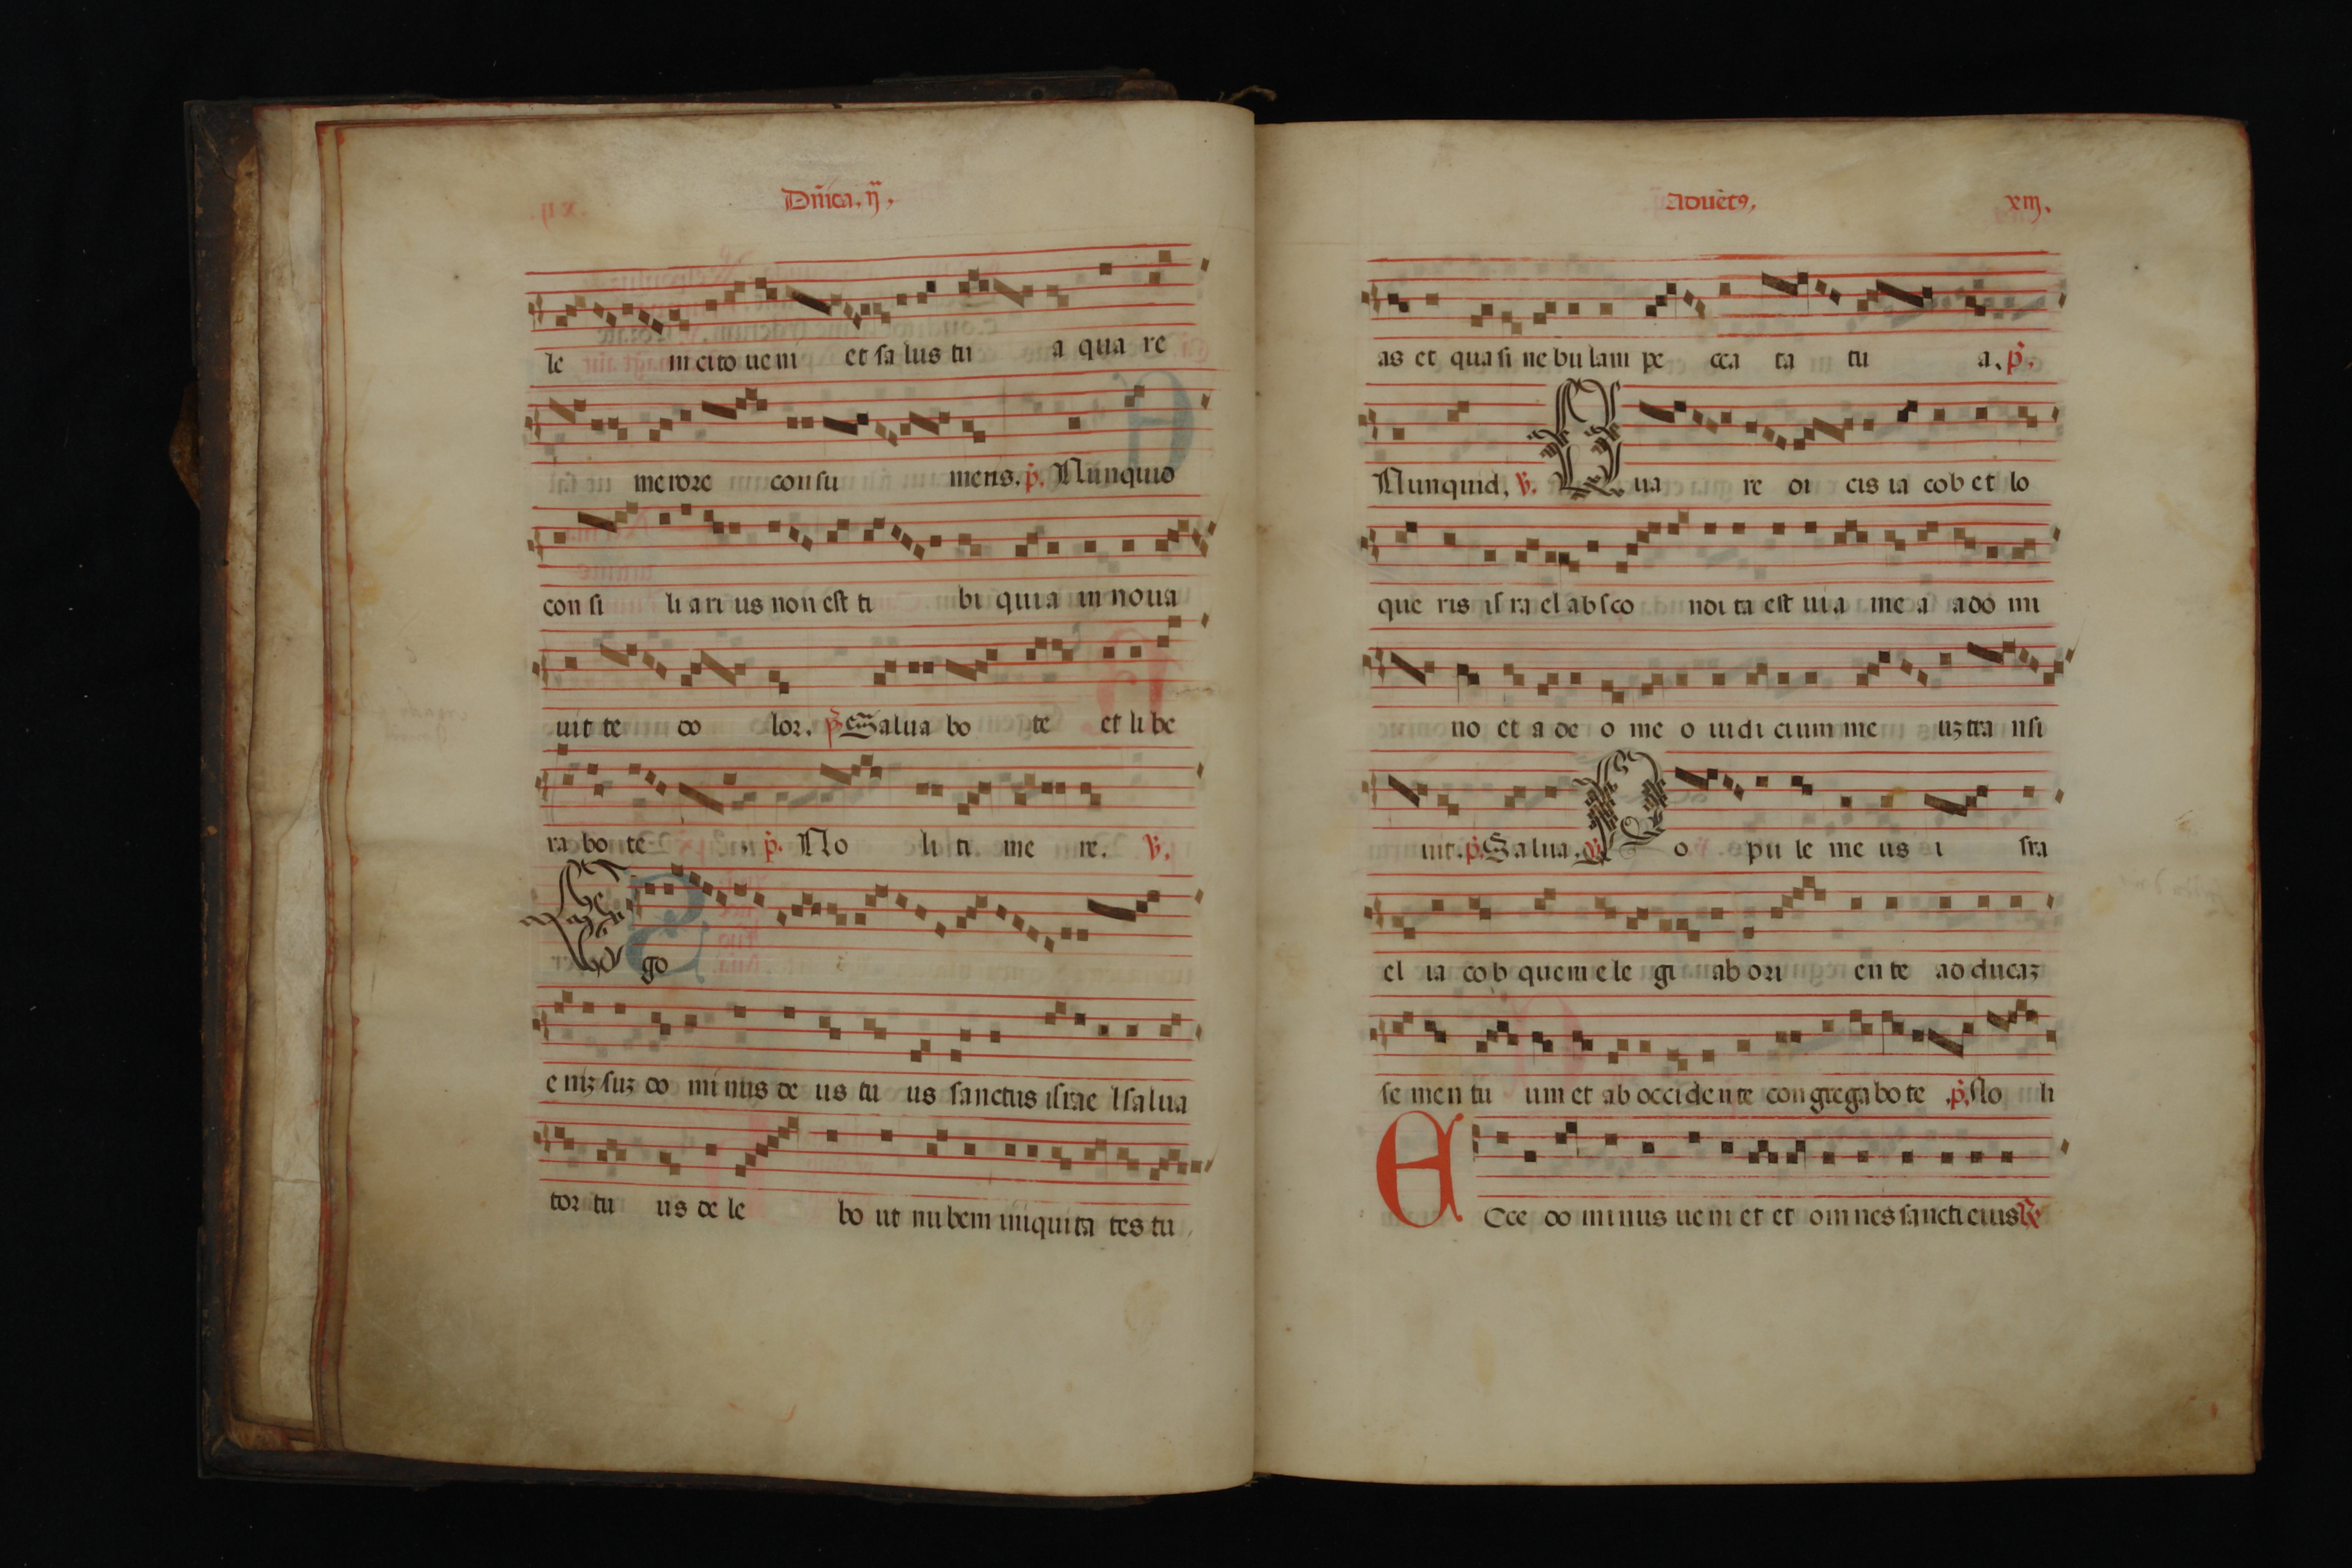 Dñica. ij.
le m cito ueni et salus tu a qua re
merore consu meris. p̃. Nunquid
con si li ari us non est ti bi quia in noua
uit te do lor. p̃. Salua bo te et li be
ra bo te p̃. No li ti me re. ℣.
Ego
e niꝫ suꝫ do mi nus de us tu us sanctus israe l salua
tor tu us de le bo ut nu bem iniquita tes tu
Aduẽtꝰ. xiij.
as et quasi ne bu lam pe cca ta tu a. p̃.
Nunquid. ℣. Qua re di cis ia cob et lo
que ris is ra el ab sco ndi ta est uia me a a do mi
no et a de o me o iudi cium me uꝫ tra nsi
uit. p̃. Salua. ℣. Po pu le me us i sra
el ia cob quem e le gi ab ori en te ad ducaꝫ
se men tu um et ab occidente congregabo te p̃. No li
Ecce do minus ueni et et omnes sancti eius ℟